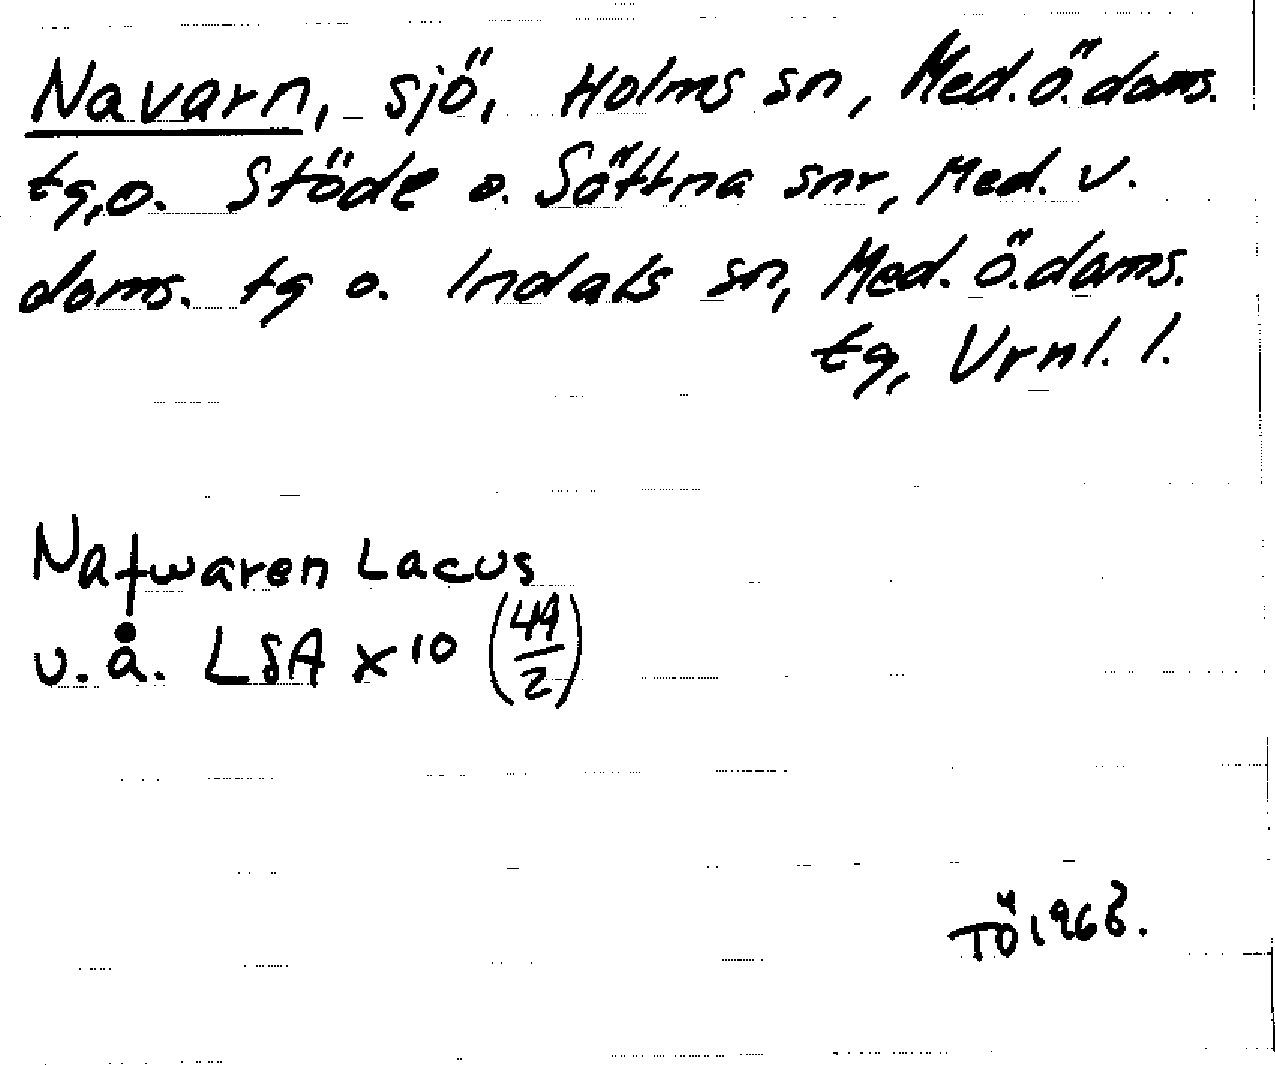 Navarn, sjö, Holms sn, Med. Ö. doms.
tg, o. Stöde o. Sättna snr, Med. v.
doms. tg o. Indals sn, Med. Ö. doms.
tg, Vrnl. l.
Nafwaren Lacus
u. å. LSA X 10 (44/2)
TÖ 1968.